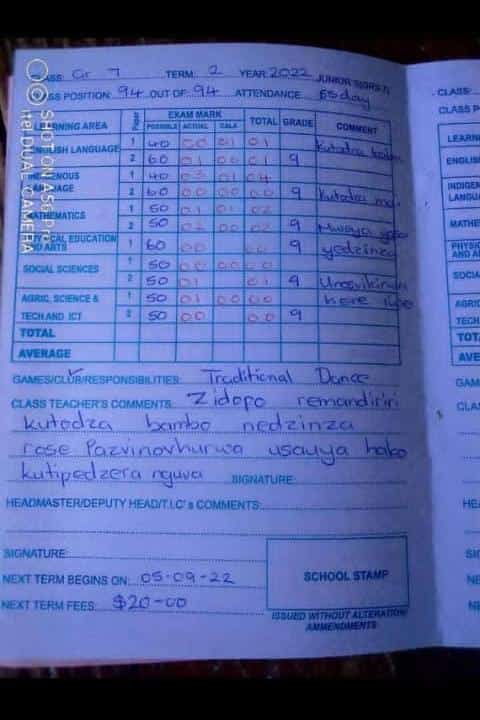 CLASS: Gr 7 TERM: 2 YEAR: 2022
CLASS POSITION: 94 OUT OF 94 ATTENDANCE: 65 day
LEARNING AREA Paper EXAM MARK TOTAL GRADE COMMENT
POSSIBLE ACTUAL CALA
ENGLISH LANGUAGE 1 40 00 01 01 kutodza
2 60 01 00 01 9
INDIGENOUS LANGUAGE 1 40 03 01 04
2 60 00 00 00 9 kutodza
MATHEMATICS 1 50 01 01 02
2 50 02 00 02 9
PHYSICAL EDUCATION AND ARTS 1 60 00 00 9 yedzinza
SOCIAL SCIENCES 1 50 00 00 00
2 50 01 01 9
AGRIC, SCIENCE & TECH AND ICT 1 50 01 00 00 here
2 50 00 00 9
TOTAL
AVERAGE
GAMES/CLUB/RESPONSIBILITIES: Traditional Dance
CLASS TEACHER'S COMMENTS: Zidofo remandiriri
kutodza bambo nedzinza
rose Pazvinovhurwa usauya hako
kutipedzera nguva SIGNATURE:
HEADMASTER/DEPUTY HEAD/T.I.C's COMMENTS:
SIGNATURE:
NEXT TERM BEGINS ON: 05-09-22
NEXT TERM FEES: $20-00
SCHOOL STAMP
ISSUED WITHOUT ALTERATION
AMMENDMENTS
SHOT ON
DUAL CAMERA